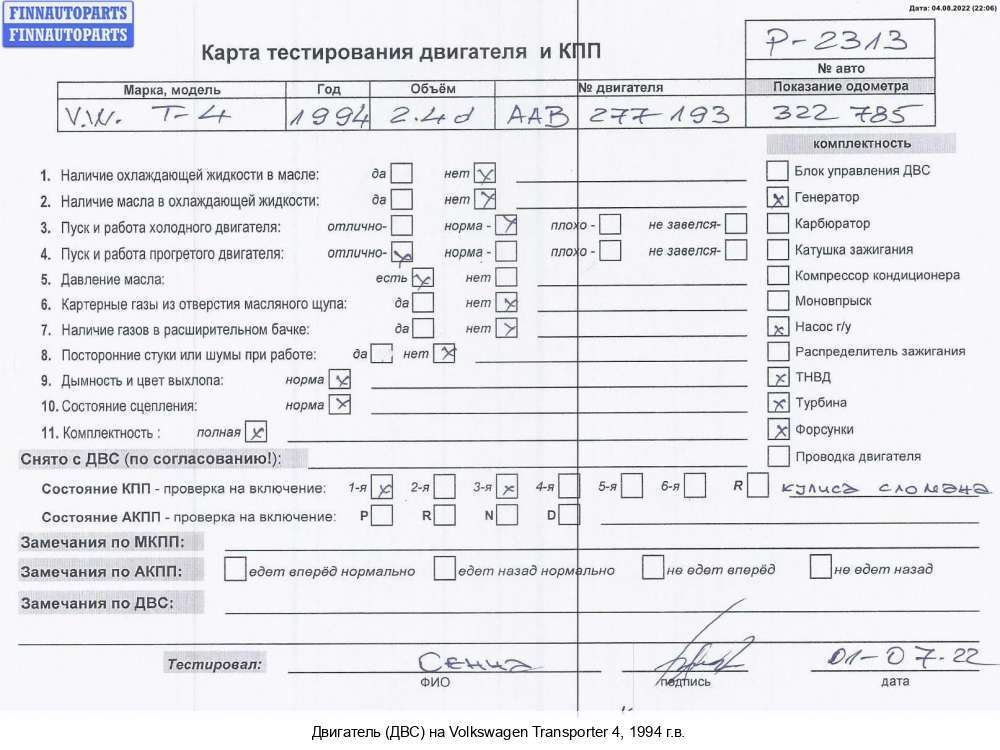 FINNAUTOPARTS
FINNAUTOPARTS
Дата: 04.08.2022 (22:06)
Карта тестирования двигателя и КПП
P-2313
№ авто
Марка, модель Год Объём № двигателя Показание одометра
V.W. T-4 1994 2.4d AAB 277 193 322 785
комплектность
1. Наличие охлаждающей жидкости в масле: да нет x
2. Наличие масла в охлаждающей жидкости: да нет x
3. Пуск и работа холодного двигателя: отлично- норма - x плохо - не завелся-
4. Пуск и работа прогретого двигателя: отлично- x норма - плохо - не завелся-
5. Давление масла: есть x нет
6. Картерные газы из отверстия масляного щупа: да нет x
7. Наличие газов в расширительном бачке: да нет x
8. Посторонние стуки или шумы при работе: да нет x
9. Дымность и цвет выхлопа: норма x
10. Состояние сцепления: норма x
11. Комплектность : полная x
Блок управления ДВС
x Генератор
Карбюратор
Катушка зажигания
Компрессор кондиционера
Моновпрыск
x Насос г/у
Распределитель зажигания
x ТНВД
x Турбина
x Форсунки
Проводка двигателя
Снято с ДВС (по согласованию!):
Состояние КПП - проверка на включение: 1-я x 2-я 3-я x 4-я 5-я 6-я R кулиса сломана
Состояние АКПП - проверка на включение: P R N D
Замечания по МКПП:
Замечания по АКПП: едет вперёд нормально едет назад нормально не едет вперёд не едет назад
Замечания по ДВС:
Тестировал: Сенца 01-07-22
ФИО подпись дата
Двигатель (ДВС) на Volkswagen Transporter 4, 1994 г.в.